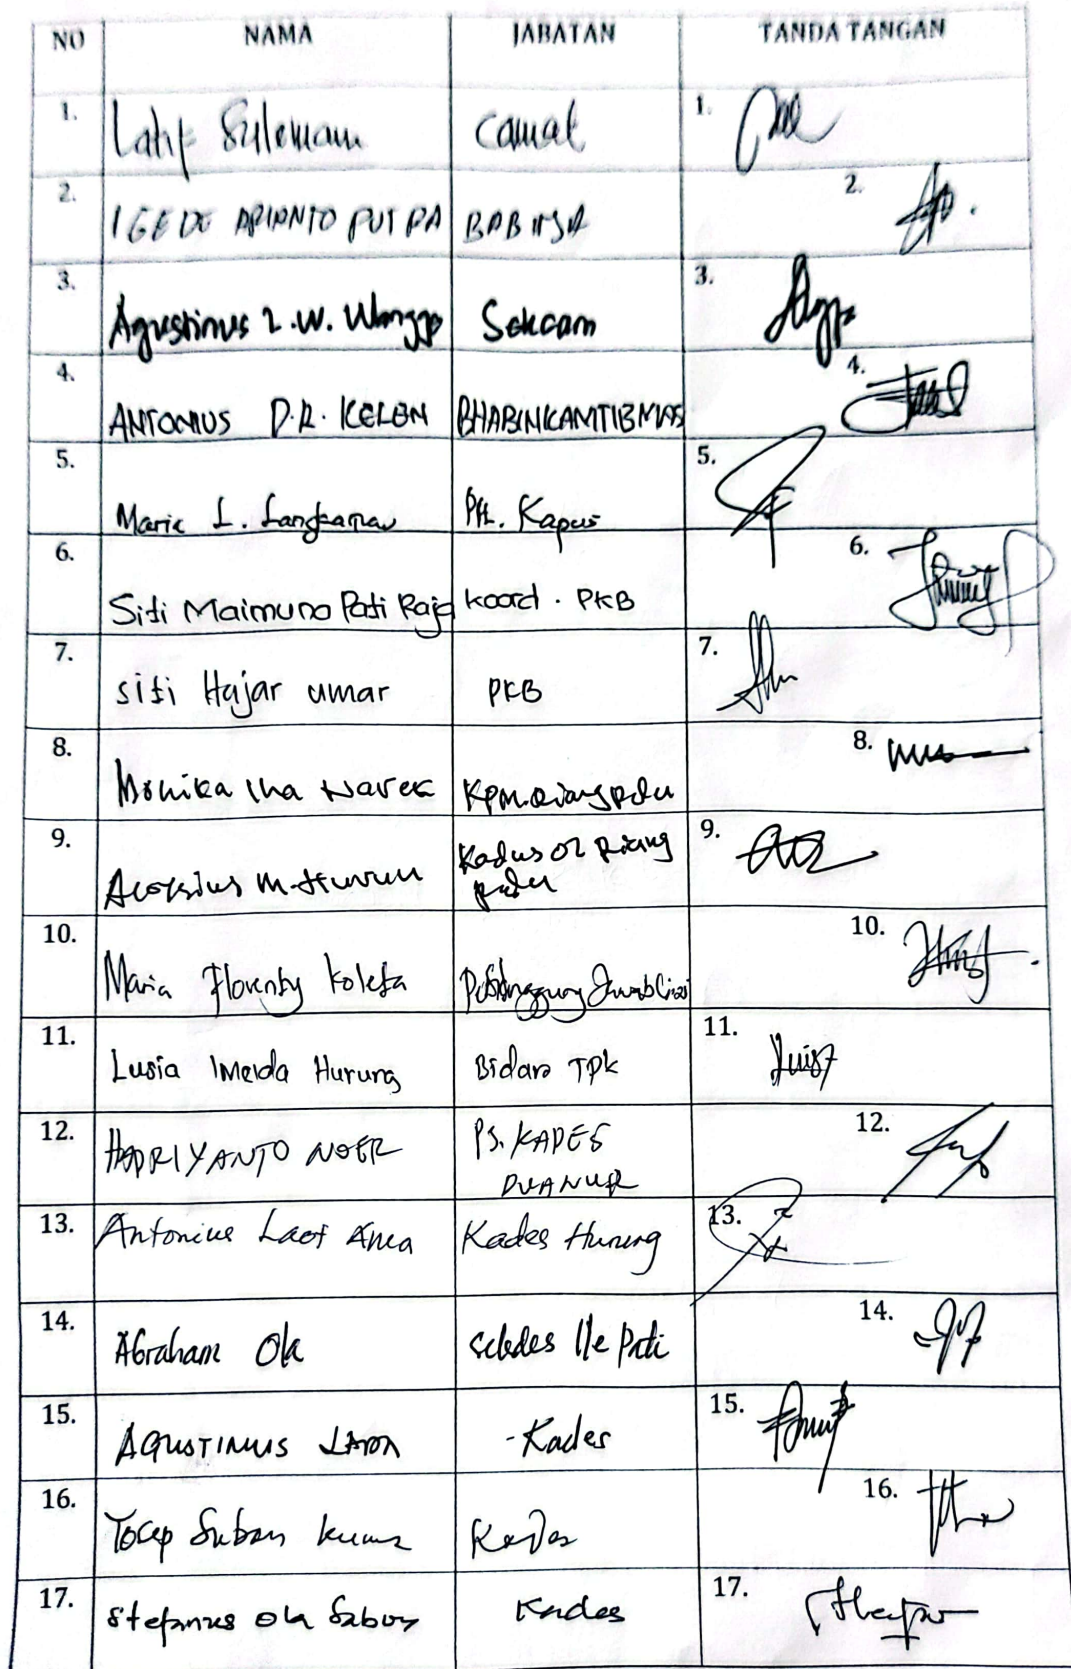 NO NAMA JABATAN TANDA TANGAN
1. Latif Suleman Camat 1.
2. I GEDE ARIANTO PUTRA BABINSA 2.
3. Agustinus L.W. Wangge Sekcam 3.
4. ANTONIUS D.R. KELEN BHABINKAMTIBMAS 4.
5. Maria L. Langkamau Plt. Kapus 5.
6. Siti Maimuna Pati Raja Koord. PKB 6.
7. Siti Hajar umar PKB 7.
8. Monika Ina KPM. 8.
9. Aloysius M. Kadus 02 Riang 9.
10. Maria Florenty Koleta 10.
11. Lusia Imelda Hurung Bidan TPK 11.
12. HADRIYANTO NOER PS. KADES 12.
DUANUR
13. Antonius Laot Ama Kades Hurung 13.
14. Abraham Ola Sekdes Ile Pati 14.
15. AGUSTINUS - Kades 15.
16. Yosep Suban Kades 16.
17. Stefanus Ola Sabon Kades 17.